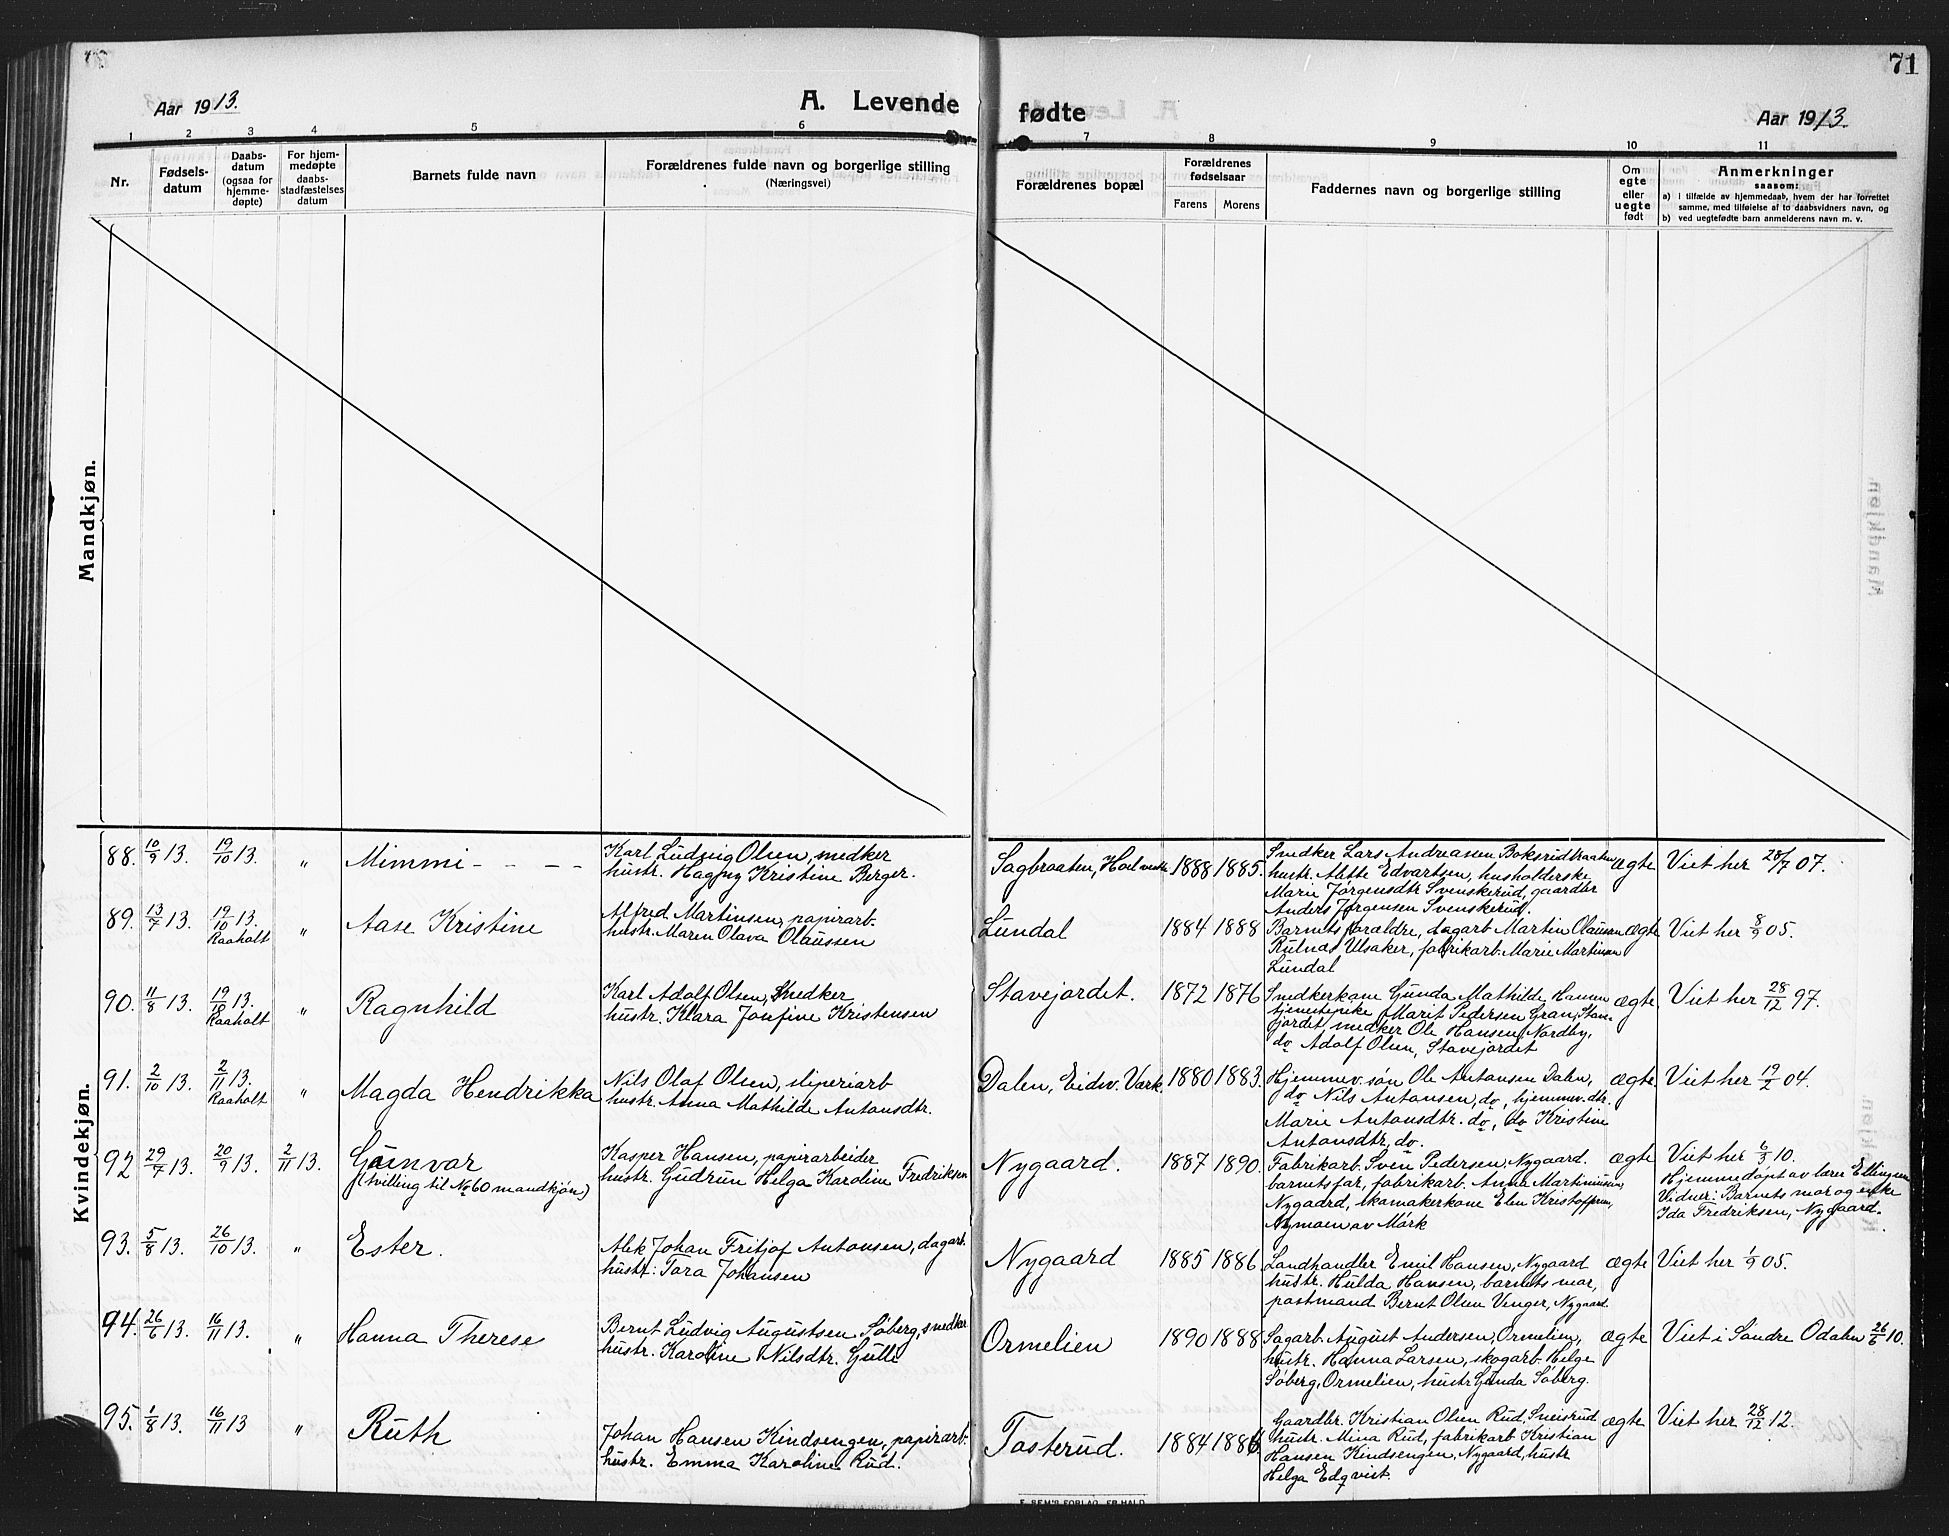 71
Aar 1913.
A. Levende
fødte
Aar 1913.
1 2 3 4 5 6 7 8 9 10 11
Nr.
Fødsels-
datum
Daabs-
datum
(ogsaa for
hjemme-
døpte)
For hjem-
medøpte
daabs-
stadfæstelses
datum
Barnets fulde navn
Forældrenes fulde navn og borgerlige stilling
(Næringsvei)
Forældrenes bopæl
Forældrenes
fødselsaar
Farens Morens
Faddernes navn og borgerlige stilling
Om
egte
eller
uegte
født
Anmerkninger
saasom:
a) i tilfælde av hjemmedaab, hvem der har forrettet
samme, med tilføielse af to daabsvidners navn, og
b) ved uegtefødte barn anmelderens navn m. v.
Mandkjøn.
Kvindekjøn.
88. 10/9 13. 19/10 13. " Mimmi - - - -
Karl Ludvig Olsen, snedker
hustr. Hagny Kristine Berger.
Sagbraaten, 1888 1885.
Snedker Lars Andreasen Boksrudbraaten
hustr. Alette Edvartsen, husholderske
Marie Jørgensdtr Svenskerud, gaardbr
Anders Jørgensen Svenskerud.
ægte Viet her 28/7 07.
89. 13/7 13. 19/10 13. " Aase Kristine
Raaholt
Alfred Martinsen, papirarb.
hustr. Maren Olava Olaussen
Lundal 1884 1888
Barnets forældre, dagarb. Martin Olausen
Ulsaker, fabrikarb. Marie Martinsen
Lundal
ægte Viet her 8/9 05.
90. 11/8 13. 19/10 13. " Ragnhild
Raaholt
Karl Adolf Olsen, Snedker
hustr. Klara Josefine Kristensen
Stavejordet. 1872 1876
Snedkerkone Gunda Mathilde Hansen
tjenestepike Marit Pedersen Gran, Stave-
jordet snedker Ole Hansen Nordby,
do Adolf Olsen, Stavejordet
ægte Viet her 28/12 97.
91. 2/10 13. 2/11 13. " Magda Hendrikka
Raaholt
Nils Olaf Olsen, sliperiarb
hustr. Anna Mathilde Antonsdtr.
Dalen, Eidsv. Værk. 1880 1883.
Hjemmev. søn Ole Antonsen Dalen,
do Nils Antonsen, do, hjemmev. dtr.
Marie Antonsdtr. do, do Kristine
Antonsdtr, do.
ægte Viet her 04.
92 29/7 13. 20/9 13. 2/11 13. Gunvor
(tvilling til No 60 mandkjøn)
Kasper Hansen, papirarbeider
hustr. Gudrun Helga Karoline Fredriksen
Nygaard. 1887 1890.
Fabrikarb. Sven Pedersen, Nygaard.
barnets far, fabrikarb. Anna Martinusen,
Nygaard, skomakerkone Elen Kristoffersen,
Nymoen av Mørk
ægte Viet her 6/3 10.
Hjemmedøpt av lærer Ellingsen
Vidner: Barnets mor og enke
Ida Fredriksen, Nygaard.
93. 5/8 13. 26/10 13. " Ester.
Alek Johan Fritjof Antonsen, dagarb.
hustr: Tora Johansen
Nygaard 1885 1886
Landhandler Emil Hansen, Nygaard
hustr. Hulda Hansen, barnets mor,
postmand Bernt Olsen Venger, Nygaard.
ægte Viet her 1/9 05.
94. 26/6 13. 16/11 13. " Hanna Therese
Bernt Ludvig Augustsen Søberg, snedker
hustr. Karoline Nilsdtr. Gulli
Ormelien 1890 1888
Sagarb. August Andersen, Ormelien,
hustr. Hanna Larsen, skogarb. Helge
Søberg, Ormelien, hustr Gunda Søberg.
ægte Viet i Søndre Odalen 26/6 10.
95. 1/8 13. 16/11 13 " Ruth
Johan Hansen Kindsengen, papirarb.
hustr. Emma Karoline Rud.
Tosterud. 1884 1886
Gaardbr. Kristian Olsen Rud, Sneisrud
hustr. Mina Rud, fabrikarb. Kristian
Hansen Kindsengen, Nygaard, hustr
Helga Edqvist.
ægte Viet her 28/12 12.